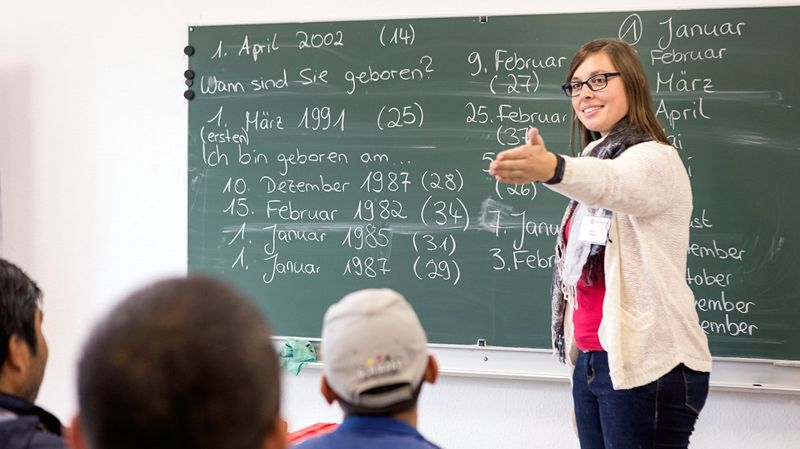 1. April 2002 (14)
Wann sind Sie geboren?
1. März 1991 (25)
(ersten)
Ich bin geboren am...
10. Dezember 1987 (28)
15. Februar 1982 (34)
1. Januar 1985 (31)
1. Januar 1987 (29)
9. Februar
(27)
25. Februar
(37)
5
(26)
7. Janu
3. Feb
① Januar
Februar
März
April
ai
i
st
ember
ober
vember
ember